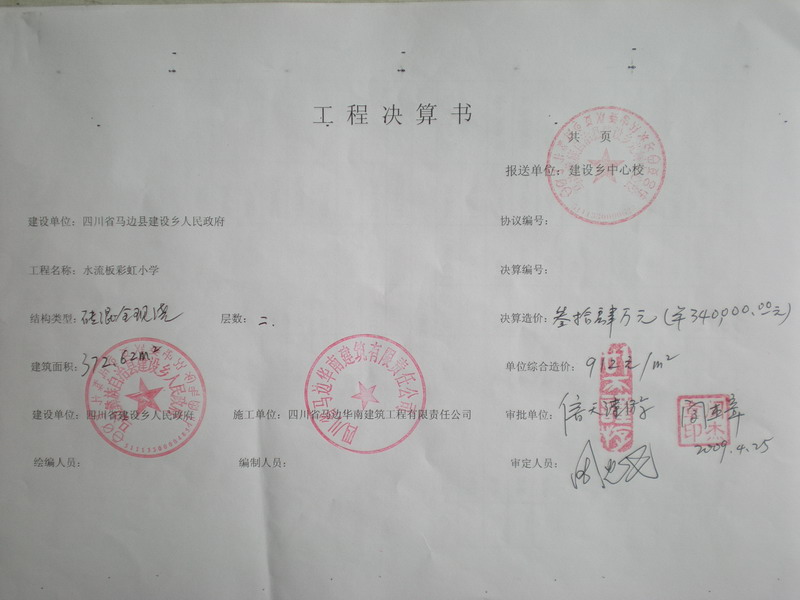 工程决算书
共 页
报送单位：建设乡中心校
建设单位：四川省马边县建设乡人民政府
协议编号：
工程名称：水流板彩虹小学
决算编号：
结构类型：砖混全现浇 层数：二.
决算造价：叁拾肆万元（￥340,000.00元）
建筑面积：372.62m²
单位综合造价：912元/m²
建设单位：四川省建设乡人民政府 施工单位：四川省马边华南建筑工程有限责任公司 审批单位：信天谨游
2009.4.25
绘编人员： 编制人员： 审定人员：
四川马边华南建筑有限责任公司